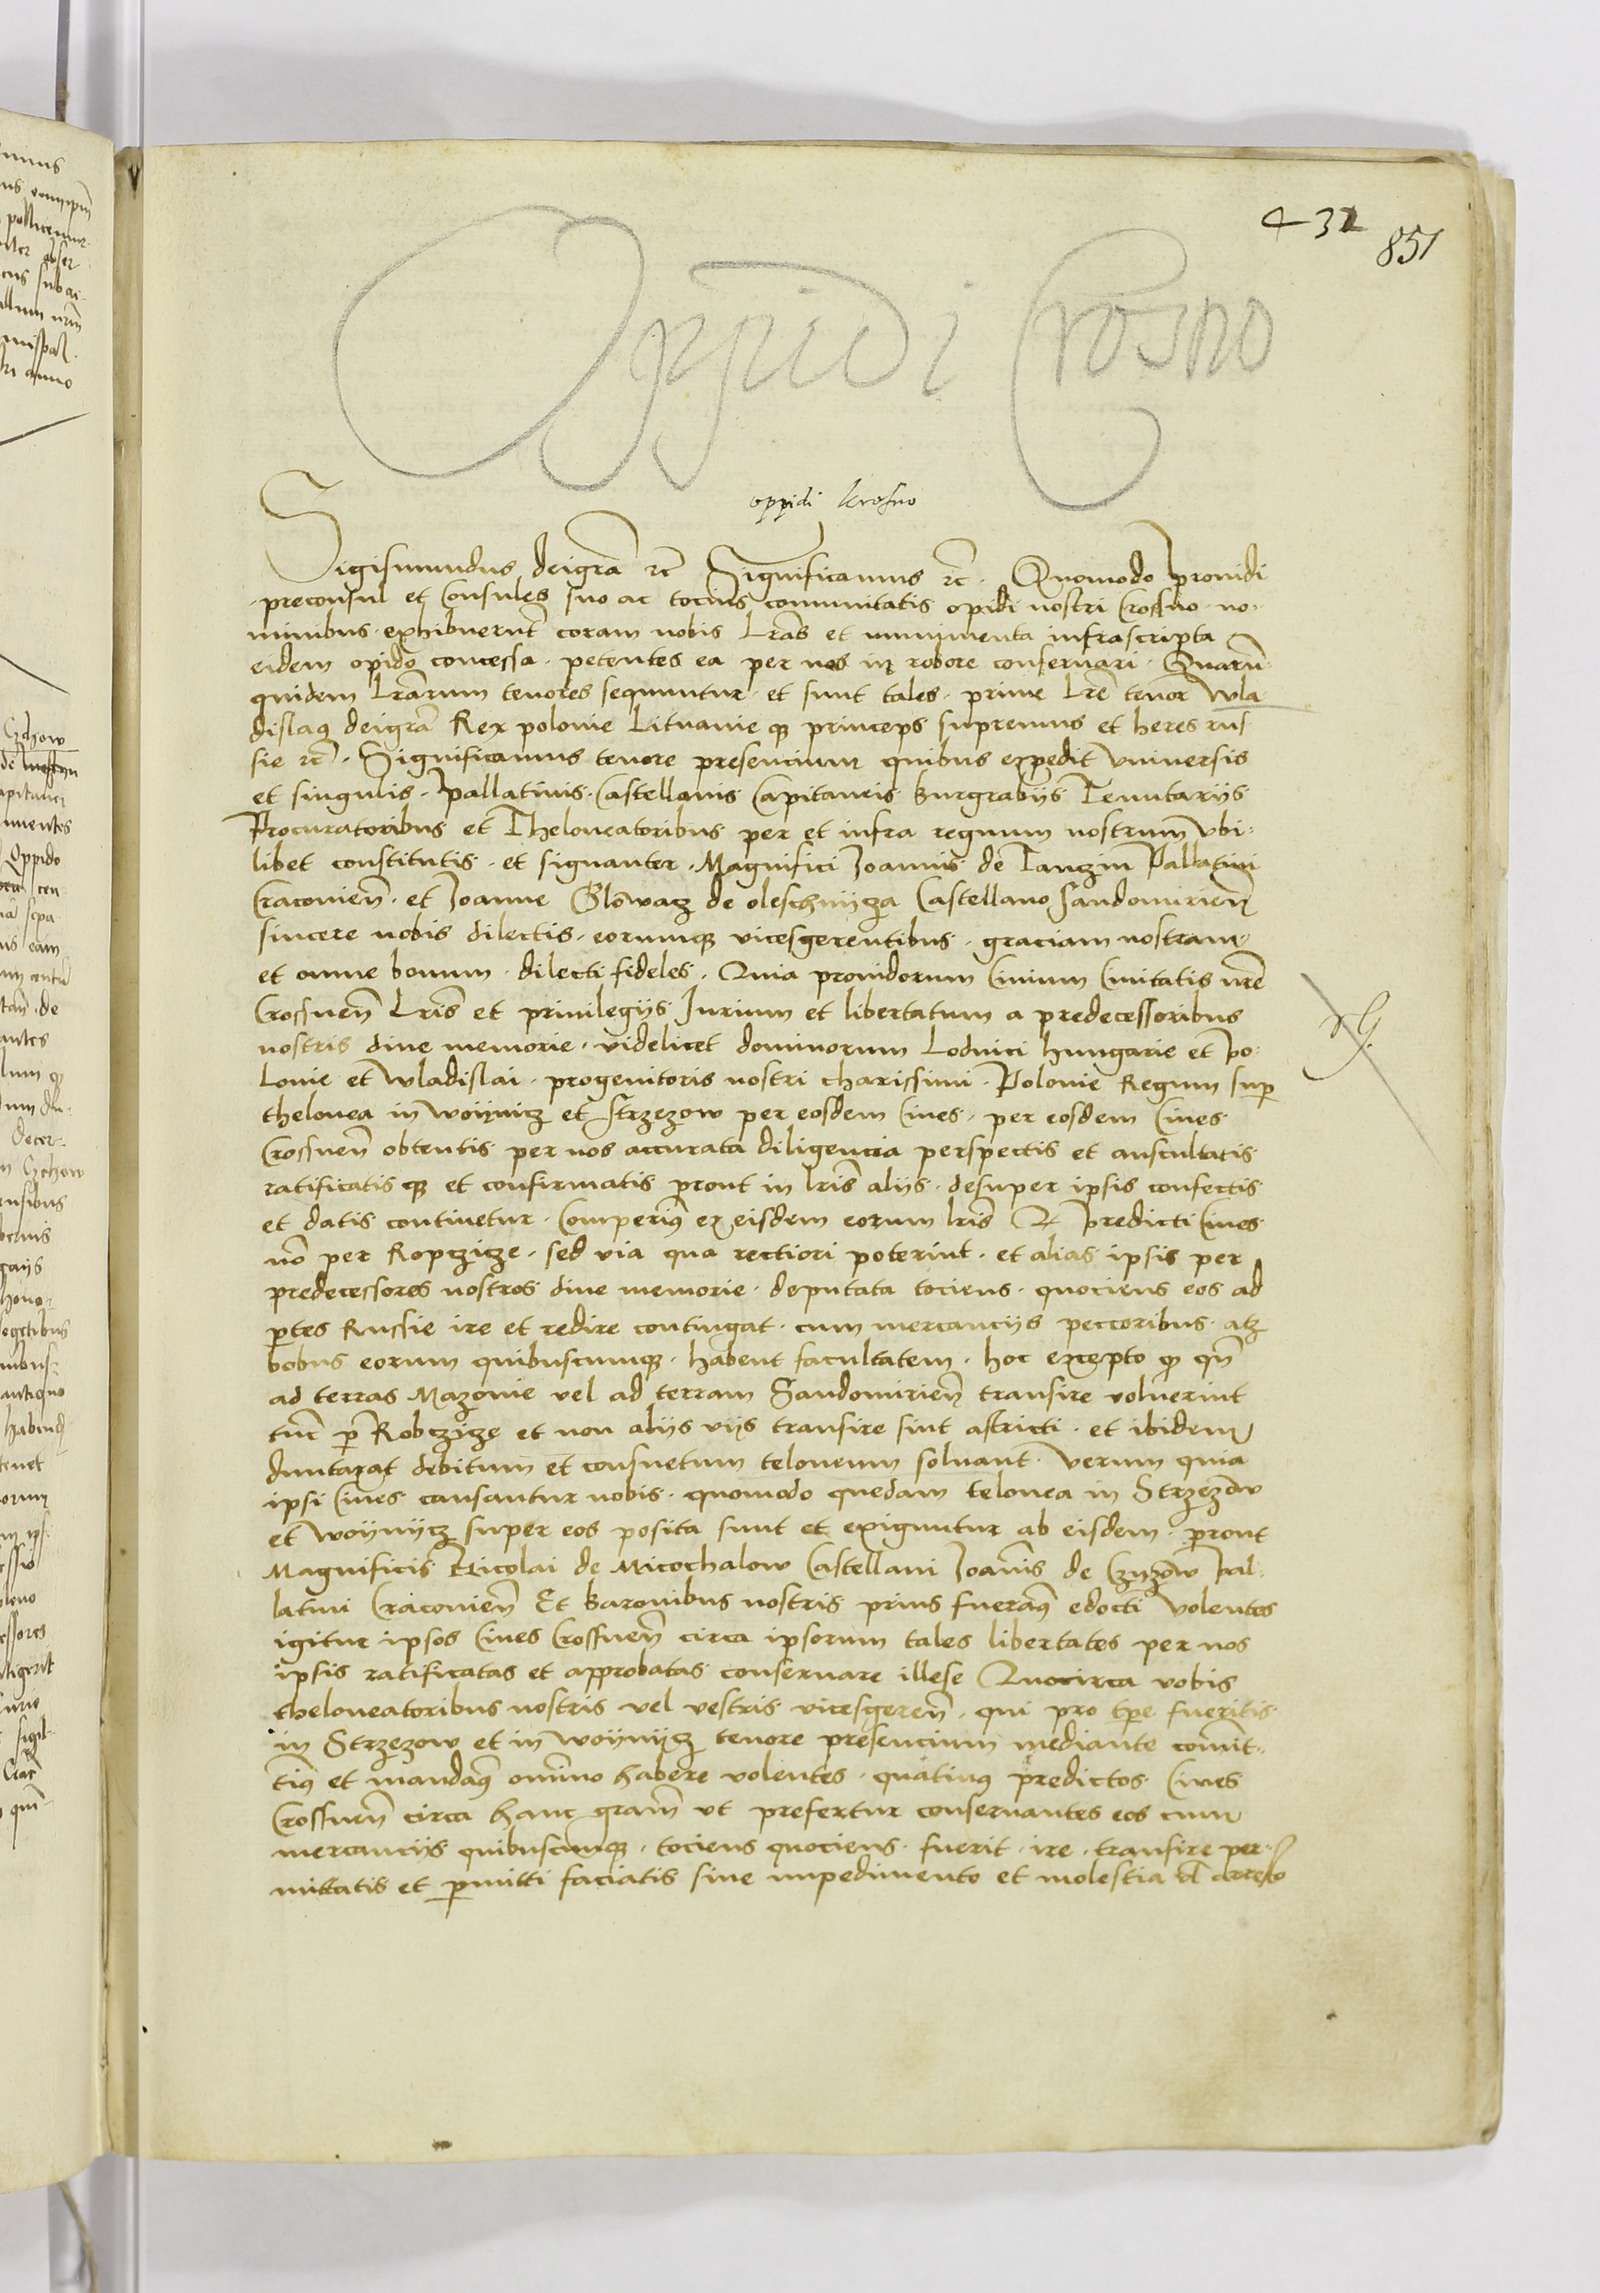 432
851
Oppidi Crosno
oppidi krosno
Sigismundus deigrã rc̃ Significamus rc̃. Quomodo providi
preconsul et Consules suo ac tocius comunitatis opidi nostri Crossno no-
minibus exhibuerunt coram nobis Lrãs et munimenta infrascripta
eidem opido concessa. petentes ea per nos in robore conservari. Quarũ
quidem Lrãrum tenores sequuntur et sunt tales. prime Lrẽ tenor Wla
dislaus deigrã Rex polonie Lituanie qz princeps supremus et heres rus
sie rc̃. Significamus tenore presencium quibus expedit Universis
et singulis. Pallatinis. Castellanis Capitaneis Burgrabijs Tenutarijs
Procuratoribus et Theloneatoribus per et infra regnum nostrum ubi-
libet constitutis. et signanter. Magnifici Joannis de Tanczin Pallatini
Cracovieñ. et Joanne Glowacz de oleschnijcza Castellano Sandomirieñ
sincere nobis dilectis. eorumqz vicesgerentibus. graciam nostram
et omne bonum. dilecti fideles. Quia providorum Civium Civitatis nrẽ
Crossneñ Lrĩs et privilegijs Jurium et libertatum a predecessoribus
nostris dive memorie. videlicet dominorum Lodvici hungarie et po-
lonie et Wladislai. progenitoris nostri charissimi. Polonie Regum sup
thelonea in woijnicz et strzezow per eosdem Cives. per eosdem Cives
Crossneñ obtentis per nos accurata diligencia perspectis et auscultatis
ratificatis qz et confirmatis prout in lrĩs alijs. desuper ipsis confectis
et datis continetur. Comperim9 ex eisdem eorum lrĩs Qz predicti Cives
nõ per Ropczicze. sed via qua rectiori poterint. et alias ipsis per
predecessores nostros dive memorie. deputata tociens. quociens eos ad
ptes Russie ire et redire contingat. cum mercancijs peccoribus. atqz
bobus eorum quibuscumqz. habent facultatem. hoc excepto qz qñ
ad terras Mazovie vel ad terram Sandomirieñ transire voluerint
tũc p Robczicze et non alijs vijs transire sint astricti. et ibidem
duntaxat debitum et consuetum teloneum solvant. verum quia
ipsi Cives causantur nobis. quomodo quedam telonea in Strzezow
et woijnijcz super eos posita sunt et exiguntur ab eisdem. prout
Magnificis Nicolai de Micochalow Castellani Joañis de Czyzow Pal-
latini Cracovieñ Et Baronibus nostris prius fueram9 edocti Volentes
igitur ipsos Cives Crossneñ circa ipsorum tales libertates per nos
ipsis ratificatas et approbatas conservare illese Quocirca vobis
theloneatoribus nostris vel vestris vicesgereñ. qui pro tpe fueritis
in Strzezow et in woijnijcz tenore presencium mediante comit-
tim9 et mandam9 omĩno habere volentes. quatinus predictos Cives
Crossneñ circa hanc grãm ut prefertur conservantes eos cum
mercancijs quibuscumqz. tociens quociens fuerit. ire. transire per-
mittatis et pmitti faciatis sine impedimento et molestia et arresto